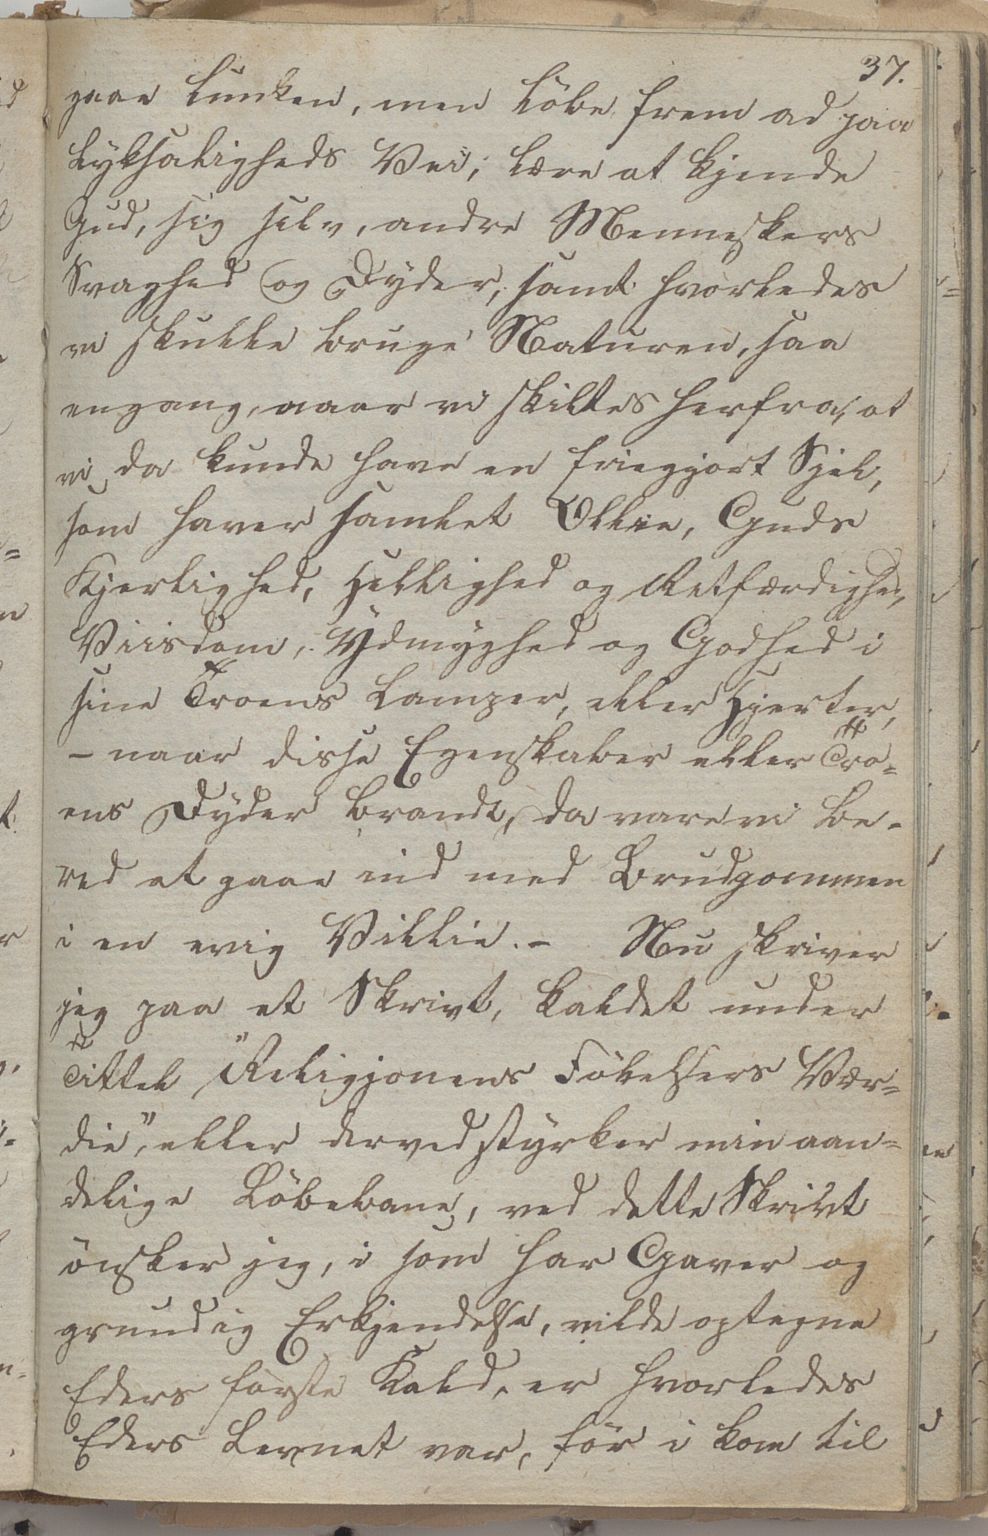 37.
gaae lunken, men løbe frem ad paa
Lyksaligheds Vei; lære at kjende
Gud, sig selv, andre Menneskers
Svaghed og Dyder, samt hvorledes
vi skulle bruge Naturen, saa
engang, naar vi skiltes herfra, at
vi da kunde have en friegjort Sjel,
som haver samlet Ollie, Guds
Kjerlighed, Hellighed og Retfærdighed,
Viisdom, Ydmyghed og Godhed i
sine Troens Lamper, eller Hjerter,
– naar disse Egenskaber eller Tro=
ens Dyder brandt, da vare vi be-
red at gaae ind med Brudgommen
i en evig Villie. – Nu skriver
jeg paa et Skrivt, kaldet under
Tittel "Religjonens Følelsers Vær=
die", eller derved styrker min aan=
delige Løbebane, ved dette Skrivt
ønsker jeg, i som har Gaver og
grundig Erkjendelse, vilde optegne
Eders første Kald, er hvorledes
Eders Levnet var, før i kom til